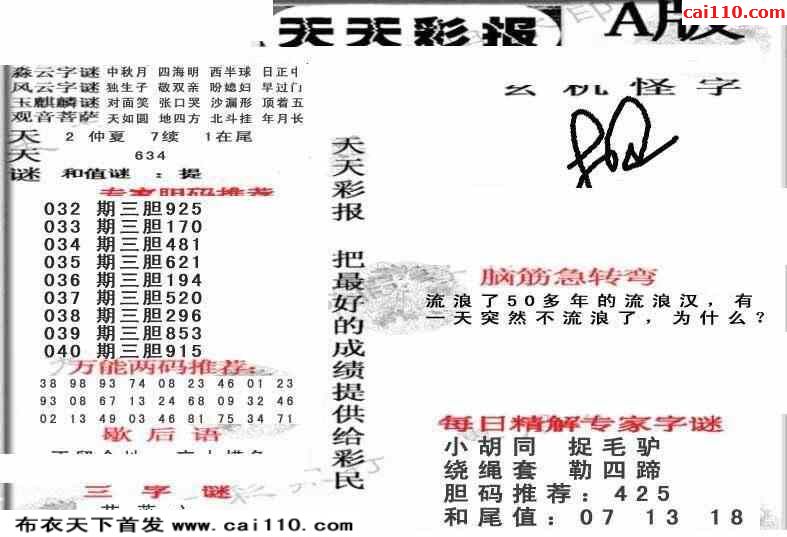 cai110.com
天天彩报 A版
森云字谜 中秋月 四海明 西半球 日正中
风云字谜 独生子 敬双亲 盼媳妇 早过门
玉麒麟谜 对面笑 张口哭 沙漏形 顶着五
观音菩萨 天如圆 地四方 北斗挂 年月长
天 2 仲夏 7续 1在尾
天 634
谜 和值谜 : 提
专家胆码推荐
032 期三胆925
033 期三胆170
034 期三胆481
035 期三胆621
036 期三胆194
037 期三胆520
038 期三胆296
039 期三胆853
040 期三胆915
万能两码推荐:
38 98 93 74 08 23 46 01 23
93 08 67 13 24 68 09 32 46
02 13 49 03 46 81 75 34 71
歇后语
三字谜
布衣天下首发 www.cai110.com
天天彩报 把最好的成绩提供给彩民
玄机怪字
脑筋急转弯
流浪了50多年的流浪汉，有
一天突然不流浪了，为什么？
每日精解专家字谜
小胡同 捉毛驴
绕绳套 勒四蹄
胆码推荐：425
和尾值：07 13 18